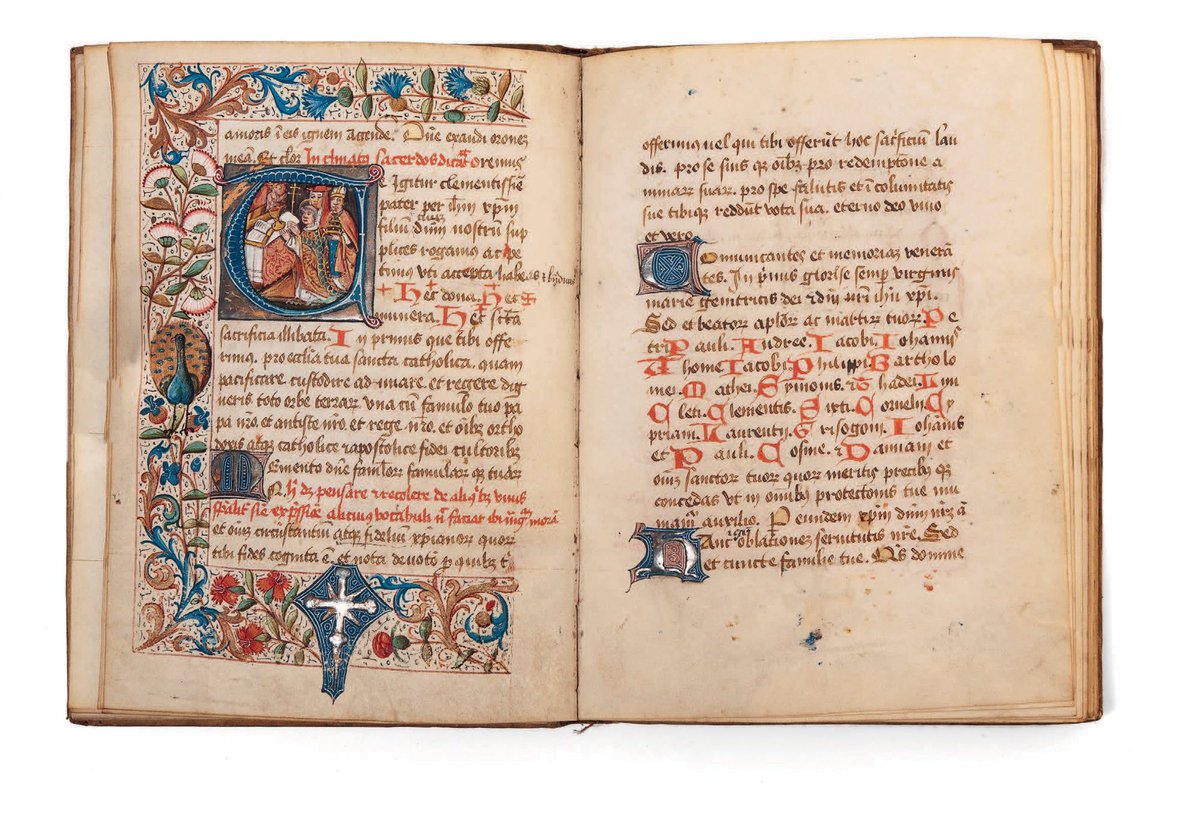 amoris ī eis ignem accende. Dñe exaudi oronez
meā. Et clor In clinatꝰ sacerdos dicat Oremus
Te Igitur clementissīe
pater per ihm xpm
filiū tuū dnm nostrū sup
plices rogamus ac pe
timus vti accepta habeas & bñdicas
+ Hec dona. + Hec
munera. + Hec sctā
sacrificia illibata. In primis que tibi offe
rimꝰ. pro ecclia tua sancta catholica. quam
pacificare. custodire ad unare. et regere dig
neris toto orbe terrar vna cū famulo tuo pa
pa nrō et antiste nrō. et rege nrō. et oībꝫ ortho
doxis atqꝫ catholice & apostolice fidei cultoribꝫ
Memento dn̄e famlor famular qꝫ tuar
N. hic dꝫ pensare & recolere de aliqbꝫ viuis
et oim circūstantium atqꝫ fidelium xpianor quor
tibi fides cognita ē. et nota deuotō p quibꝫ t
offerimus uel qui tibi offerūt hoc sacficiū lau
dis. pro se suis qꝫ oībꝫ pro redemptone a
nimar suar. pro spe salutis et ī columitatis
sue tibiqꝫ reddūt vota sua. eterno deo viuo
et vero
Comunicantes et memoriaz venerā
tes. In p̄mis glorise semp virginis
marie genitricis dei & dnī nrī ihū xpī.
Sed et beator aplor ac martir tuor Pe
tri Pauli. Andree. Iacobi. Iohanis
Thome Iacobi. Philippi Bartholo
mei. Mathei. Symonis. & Thadei. Lini
Cleti. Clementis. Sixti. Cornelii Cy
priani. Laurentii. Grisogoni. Iohanis
et Pauli. Cosme. & Damiani et
oiuꝫ sanctor tuor quor meritis precibꝫ qꝫ
concedas vt in omībus protectonis tue mu
niamꝰ auxilio. P eundem xpm dnm nrꝫ ā
Hanc oblationez seruitutis nrē. Sed
et cuncte familie tue. Qs domine